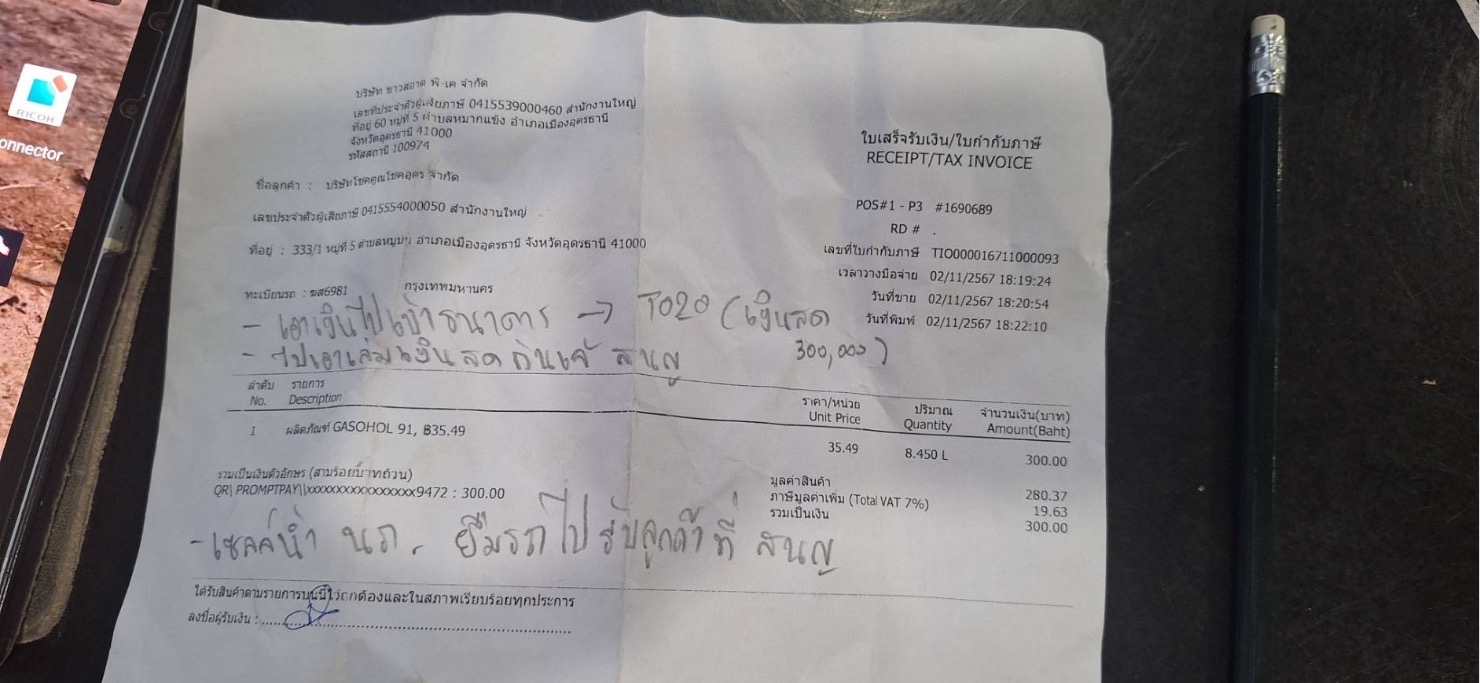 RICOH
onnector
บริษัท ขาวสอาด พี-เค จำกัด
เลขที่ประจำตัวผู้เสียภาษี 0415539000460 สำนักงานใหญ่
ที่อยู่ 60 หมู่ที่ 5 ตำบลหมากแข้ง อำเภอเมืองอุดรธานี
จังหวัดอุดรธานี 41000
รหัสสถานี 100974
ใบเสร็จรับเงิน/ใบกำกับภาษี
RECEIPT/TAX INVOICE
ชื่อลูกค้า : บริษัทโชคคูณโชคอุดร จำกัด
POS#1 - P3 #1690689
เลขประจำตัวผู้เสียภาษี 0415554000050 สำนักงานใหญ่
RD # .
ที่อยู่ : 333/1 หมู่ที่ 5 ตำบลหมูม่น อำเภอเมืองอุดรธานี จังหวัดอุดรธานี 41000
เลขที่ใบกำกับภาษี TIO000016711000093
เวลาวางมือจ่าย 02/11/2567 18:19:24
ทะเบียนรถ : ฆส6981 กรุงเทพมหานคร
วันที่ขาย 02/11/2567 18:20:54
วันที่พิมพ์ 02/11/2567 18:22:10
- เอาเงินไปเข้าธนาคาร → T020 (เงินสด
300,000)
- ไปเอาเล่มเงินสด สนญ
ลำดับ รายการ ราคา/หน่วย ปริมาณ จำนวนเงิน(บาท)
No. Description Unit Price Quantity Amount(Baht)
1 ผลิตภัณฑ์ GASOHOL 91, ฿35.49 35.49 8.450 L 300.00
รวมเป็นเงินตัวอักษร (สามร้อยบาทถ้วน)
QR\ PROMPTPAY\\xxxxxxxxxxxxxxxx9472 : 300.00
มูลค่าสินค้า 280.37
ภาษีมูลค่าเพิ่ม (Total VAT 7%) 19.63
รวมเป็นเงิน 300.00
- เซลล์น้ำ นภ. ยืมรถไปรับลูกค้าที่ สนญ
ได้รับสินค้าตามรายการบนนี้ไว้ถูกต้องและในสภาพเรียบร้อยทุกประการ
ลงชื่อผู้รับเงิน :